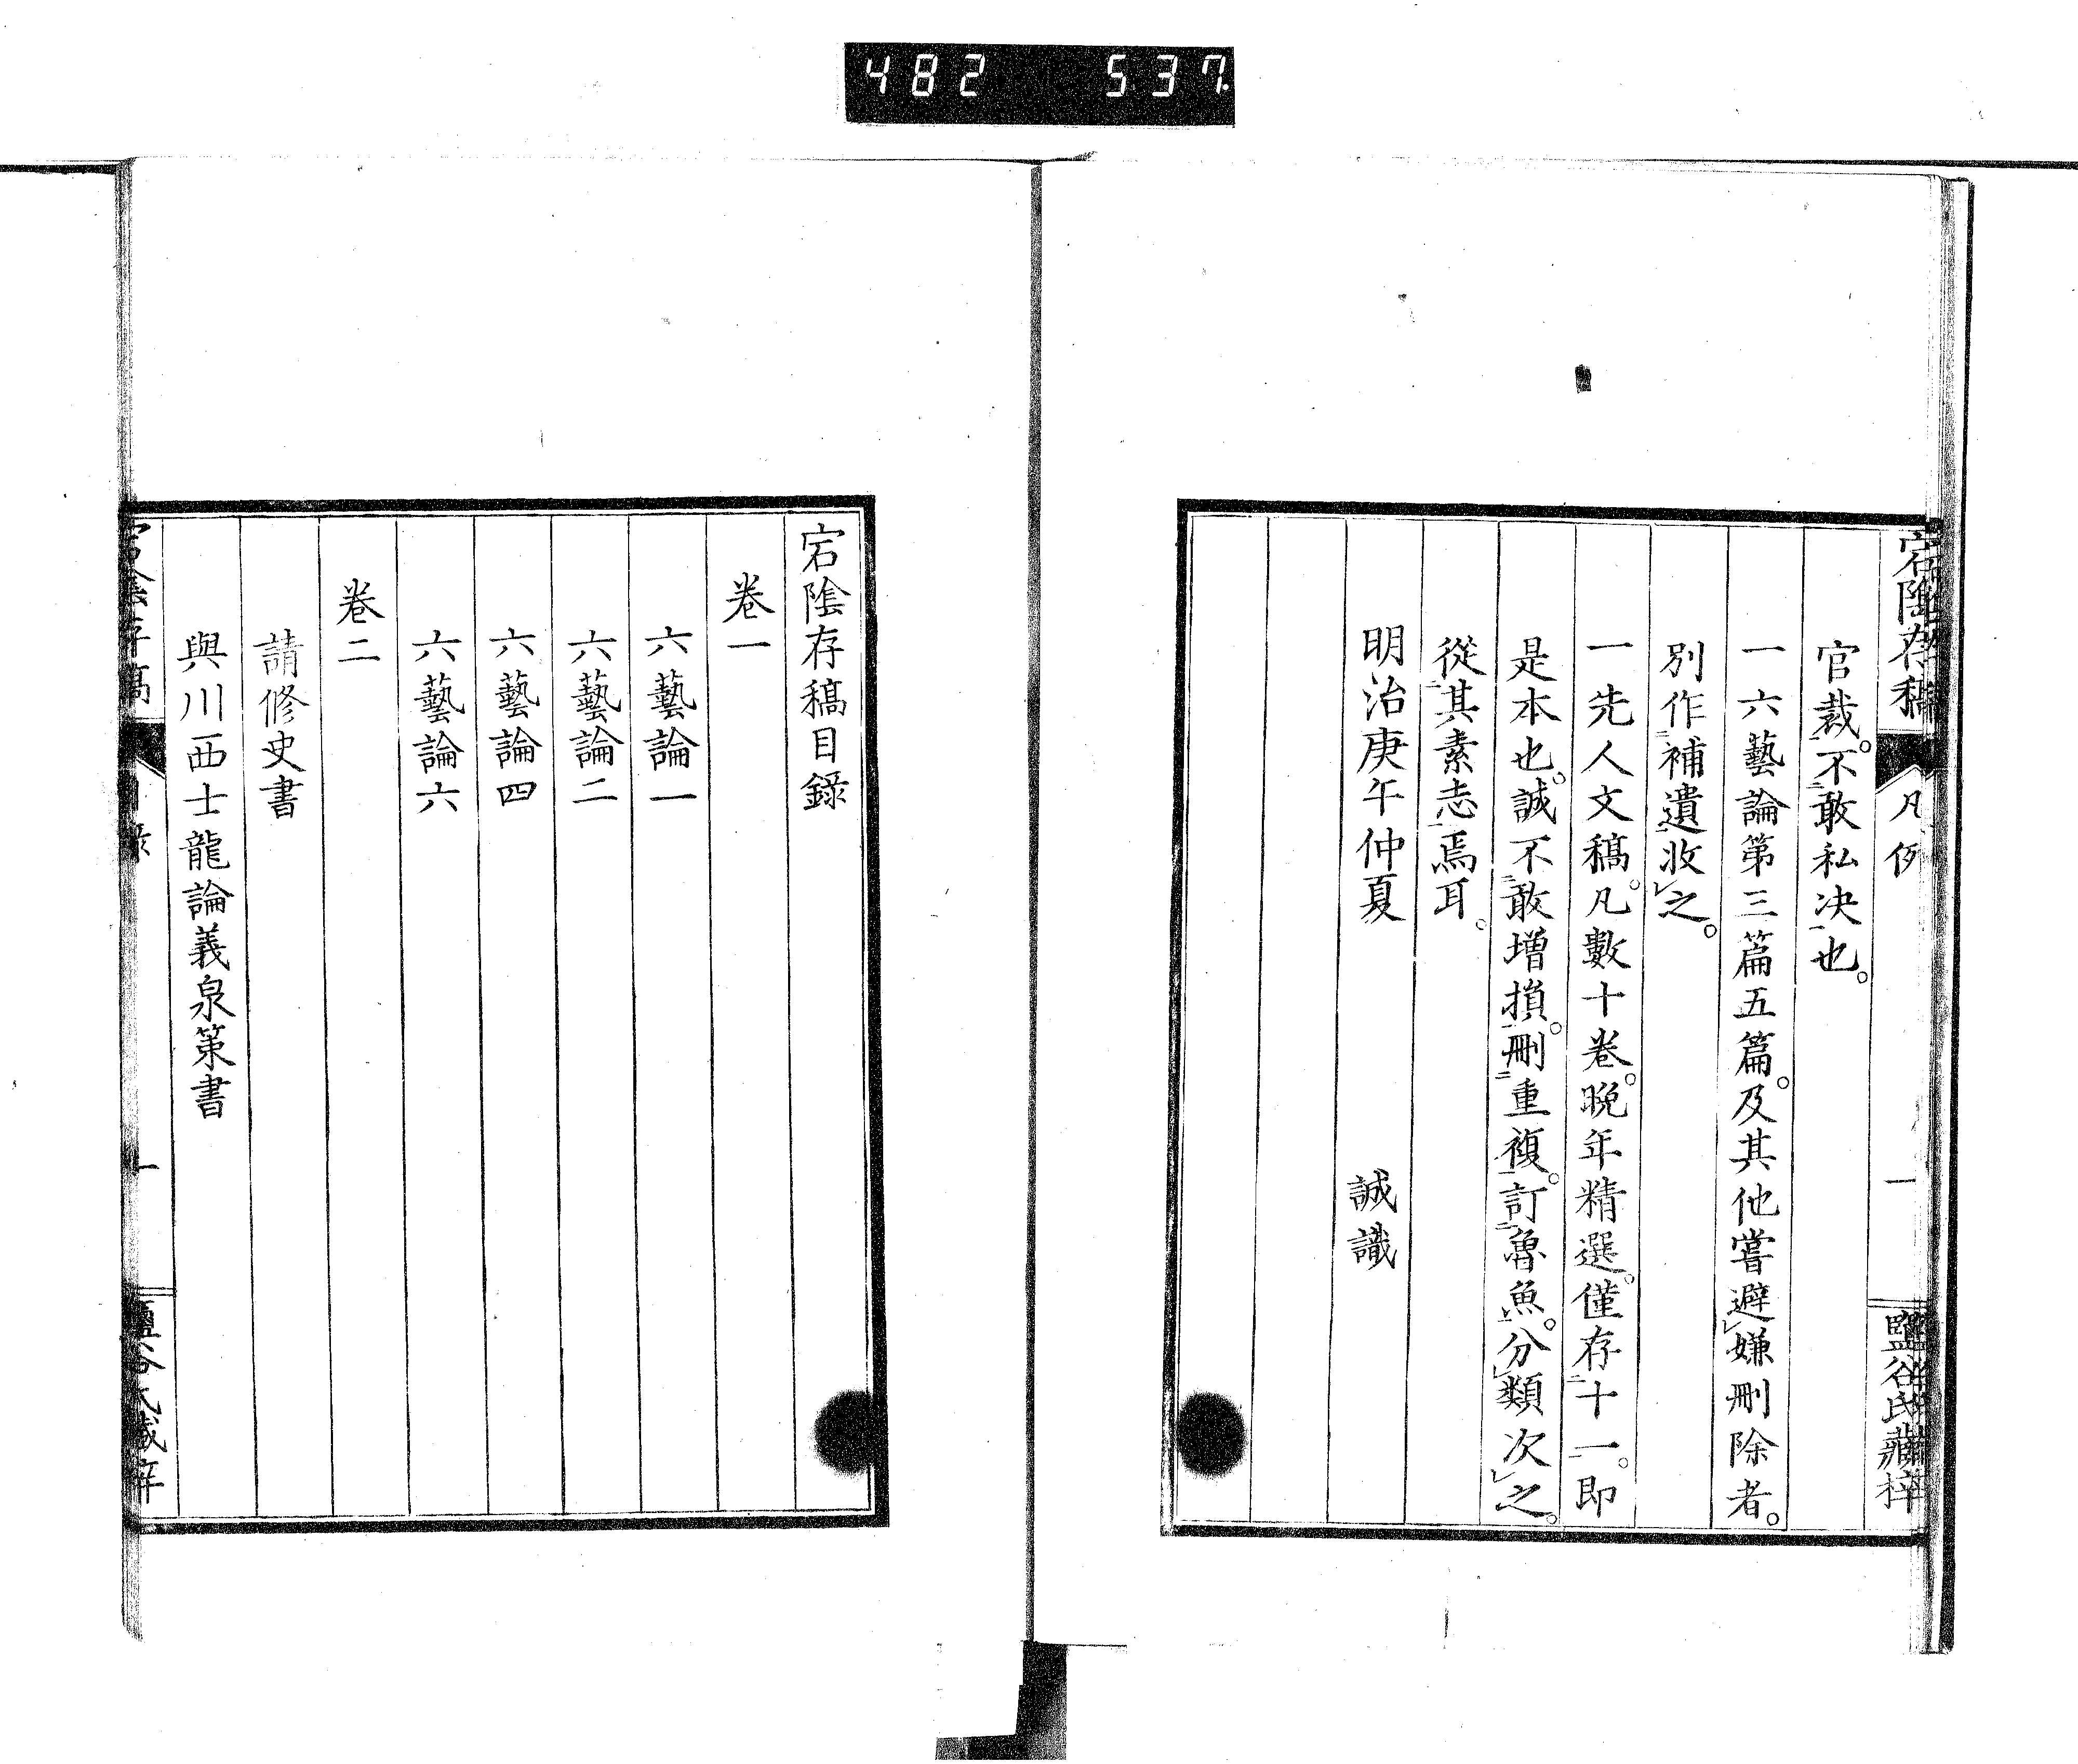 482 537.
宕陰存稿 凡例 一 鹽谷氏藏梓
官裁。不敢私决也。
一六藝論第三篇五篇。及其他嘗避嫌刪除者。
別作補遺收之。
一先人文稿。凡數十卷。晚年精選。僅存十一。即
是本也。誠不敢增損。刪重複。訂魯魚。分類次之。
從其素志焉耳。
明治庚午仲夏 誠識
宕陰存稿目錄
卷一
六藝論一
六藝論二
六藝論四
六藝論六
卷二
請修史書
與川西士龍論義泉策書
宕陰存稿 目錄 一 鹽谷氏藏梓